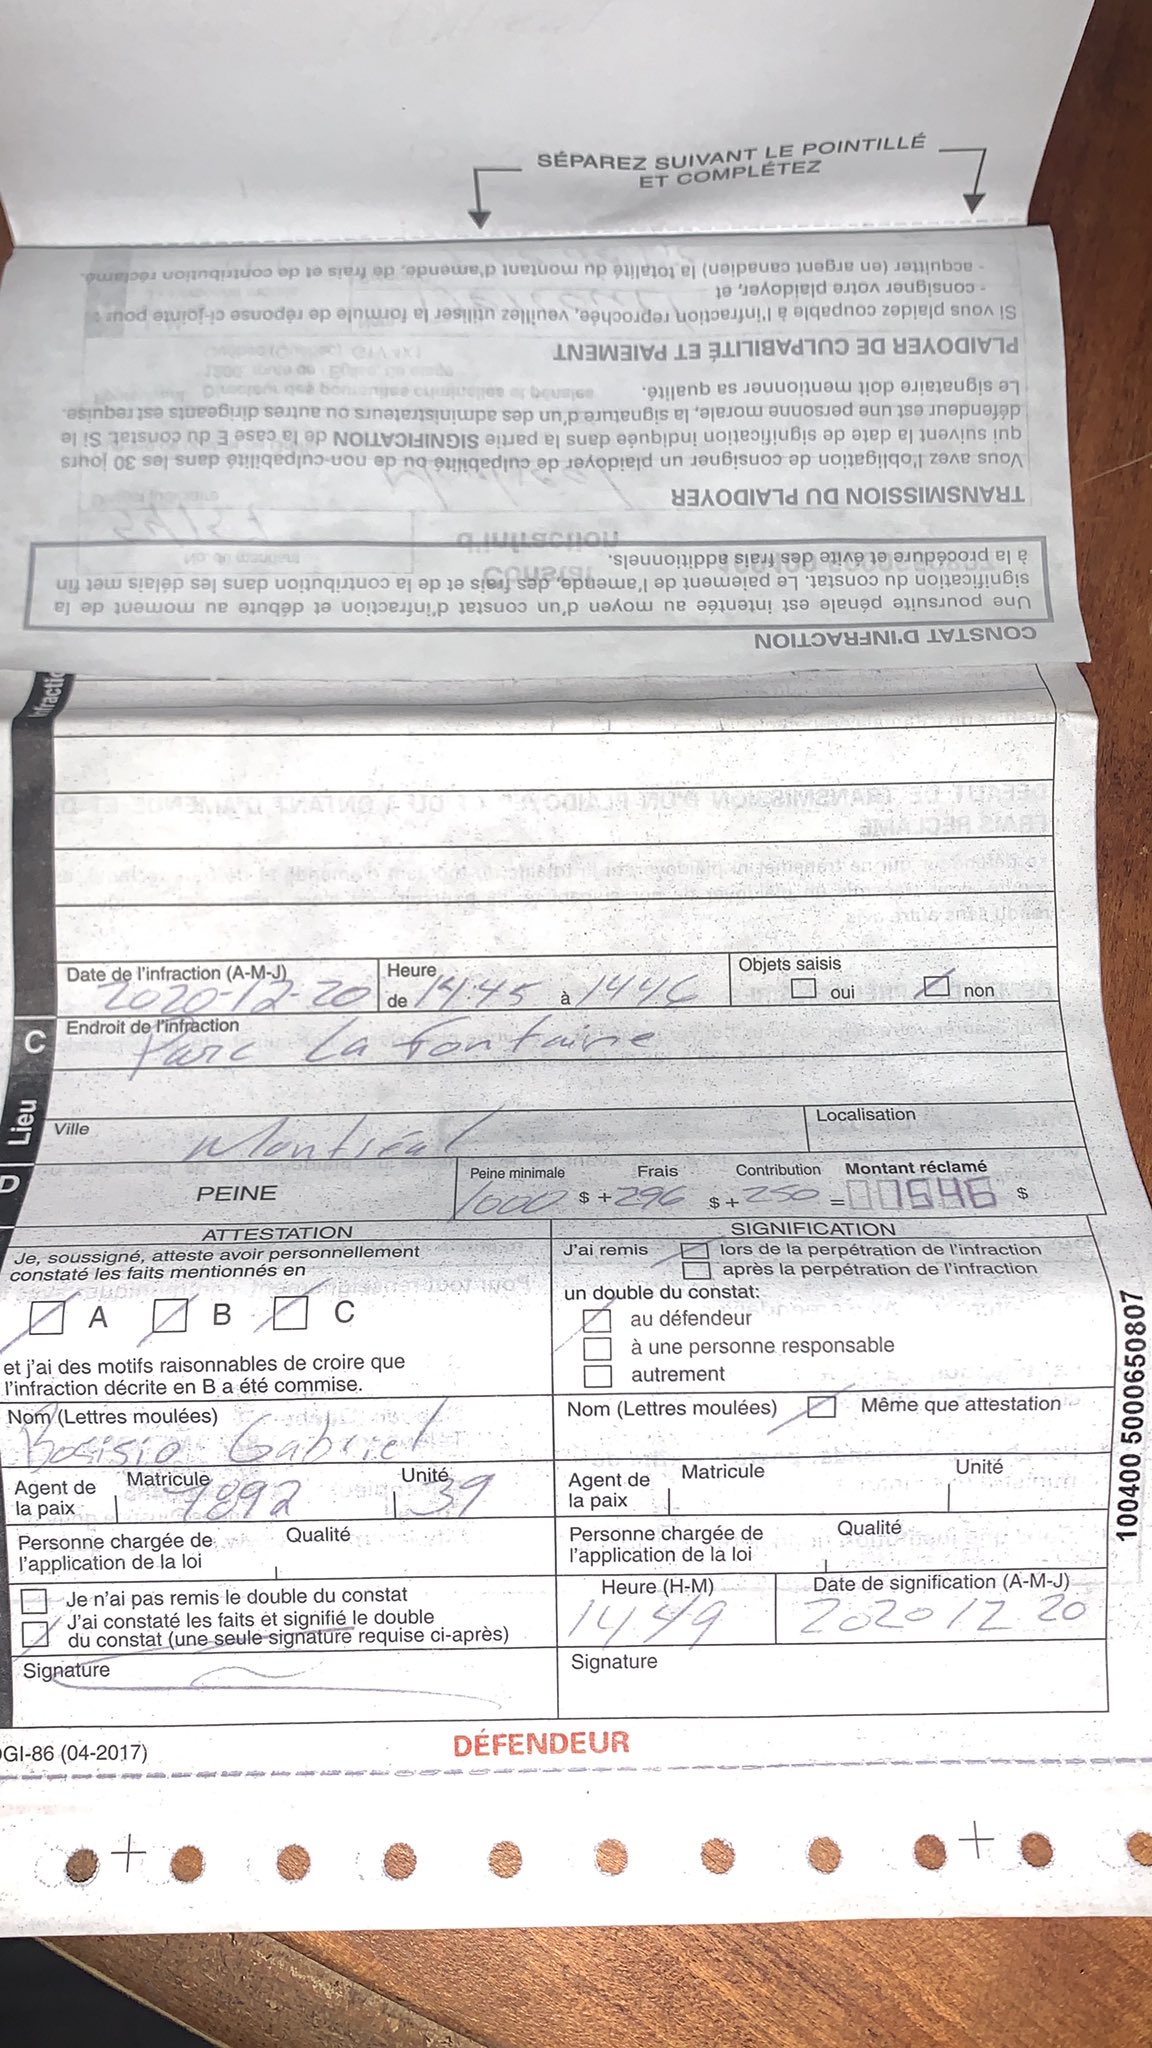 SÉPAREZ SUIVANT LE POINTILLÉ
ET COMPLÉTEZ
CONSTAT D'INFRACTION
Une poursuite pénale est intentée au moyen d'un constat d'infraction et débute au moment de la
signification du constat. Le paiement de l'amende, des frais et de la contribution dans les délais met fin
à la procédure et évite des frais additionnels.
TRANSMISSION DU PLAIDOYER
Vous avez l'obligation de consigner un plaidoyer de culpabilité ou de non-culpabilité dans les 30 jours
qui suivent la date de signification indiquée dans la partie SIGNIFICATION de la case E du constat. Si le
défendeur est une personne morale, la signature d'un des administrateurs ou autres dirigeants est requise.
Le signataire doit mentionner sa qualité.
PLAIDOYER DE CULPABILITÉ ET PAIEMENT
Si vous plaidez coupable à l'infraction reprochée, veuillez utiliser la formule de réponse ci-jointe pour :
- consigner votre plaidoyer, et
- acquitter (en argent canadien) la totalité du montant d'amende, de frais et de contribution réclamé.
Date de l'infraction (A-M-J) Heure Objets saisis
2020-12-20 de 14:45 à 1446 oui non
C Endroit de l'infraction
Parc La Fontaine
Lieu
Ville Montréal Localisation
D PEINE Peine minimale Frais Contribution Montant réclamé
1000 $ + 296 $ + 250 = 1546 $
ATTESTATION SIGNIFICATION
Je, soussigné, atteste avoir personnellement
constaté les faits mentionnés en
A B C
et j'ai des motifs raisonnables de croire que
l'infraction décrite en B a été commise.
J'ai remis lors de la perpétration de l'infraction
après la perpétration de l'infraction
un double du constat:
au défendeur
à une personne responsable
autrement
Nom (Lettres moulées) Nom (Lettres moulées) Même que attestation
Bosisio Gabriel
Agent de la paix Matricule 7892 Unité 39 Agent de la paix Matricule Unité
Personne chargée de l'application de la loi Qualité Personne chargée de l'application de la loi Qualité
Je n'ai pas remis le double du constat
J'ai constaté les faits et signifié le double
du constat (une seule signature requise ci-après)
Heure (H-M) Date de signification (A-M-J)
1449 2020 12 20
Signature Signature
100400 5000650807
DGI-86 (04-2017) DÉFENDEUR